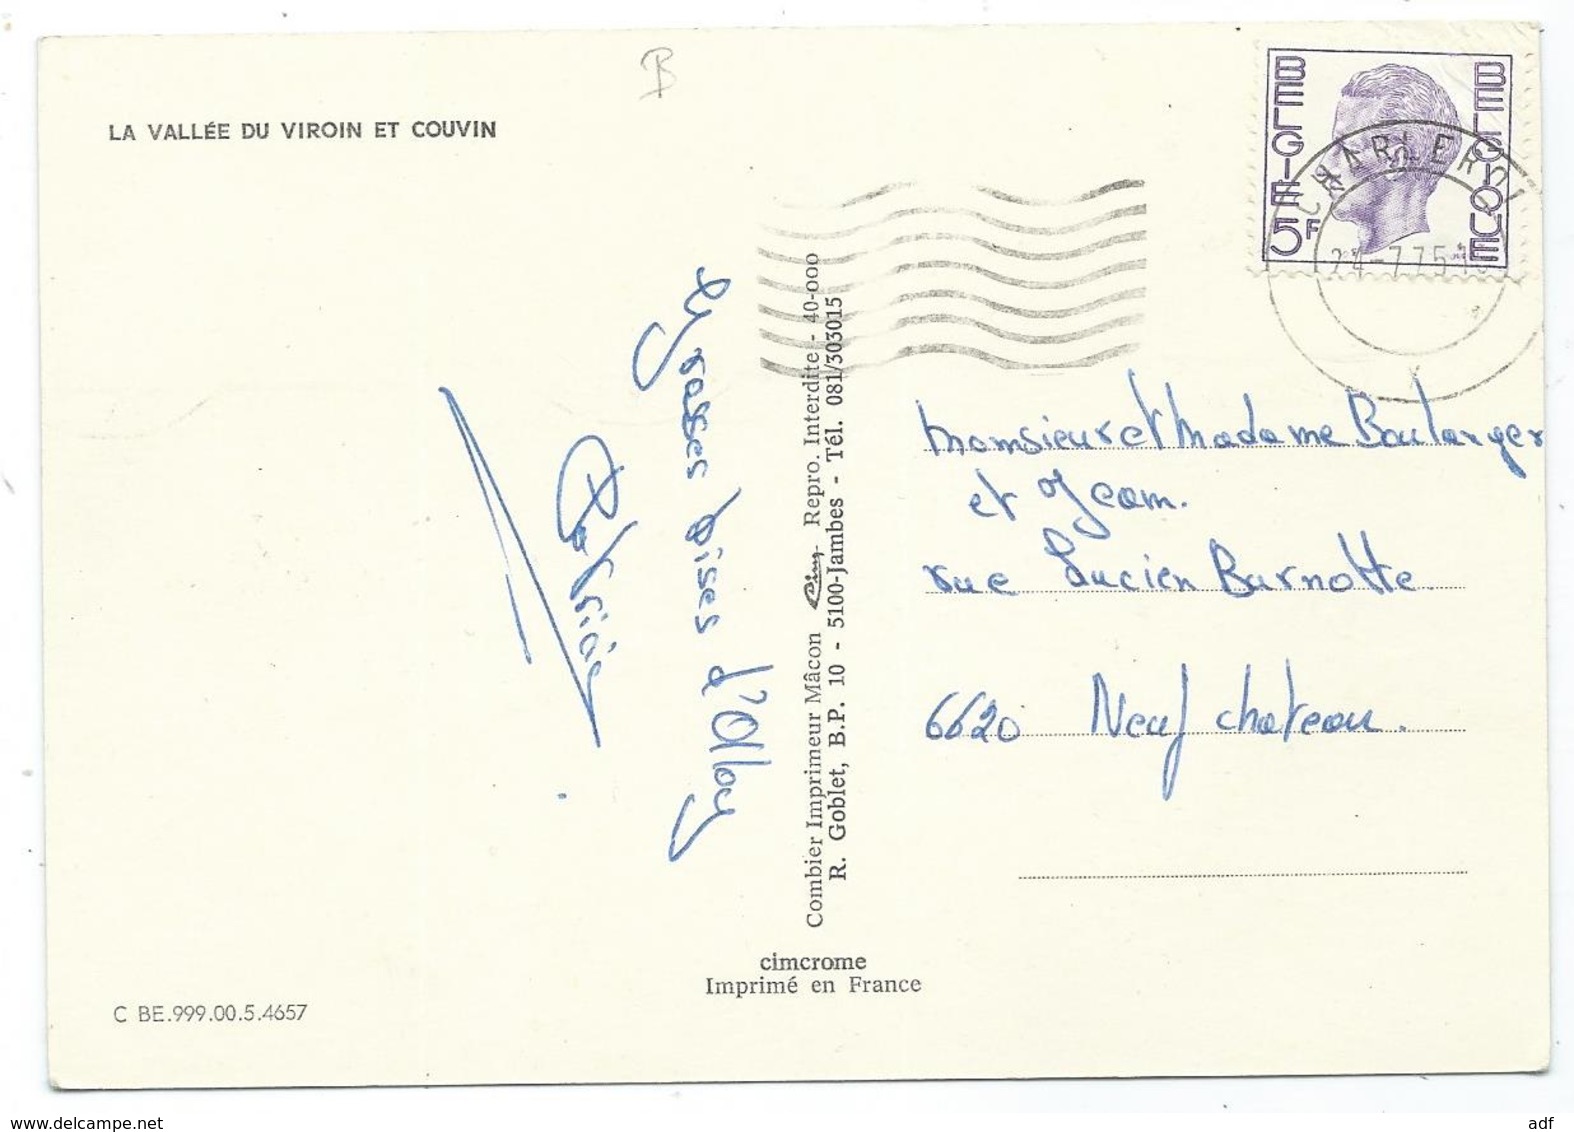 B
LA VALLÉE DU VIROIN ET COUVIN
BELGIE
BELGIQUE
5F
CHARLEROI
24-7 75
grasses bises d'Olloy
Patricia
Combier Imprimeur Mâcon Cim Repro. Interdite - 40-000
R. Goblet, B.P. 10 - 5100-Jambes - Tél. 081/303015
Monsieur et Madame Boulanger
et Jean.
rue Lucien Burnotte
6620 Neufchateau.
cimcrome
Imprimé en France
C BE.999.00.5.4657
www.delcampe.net
adf